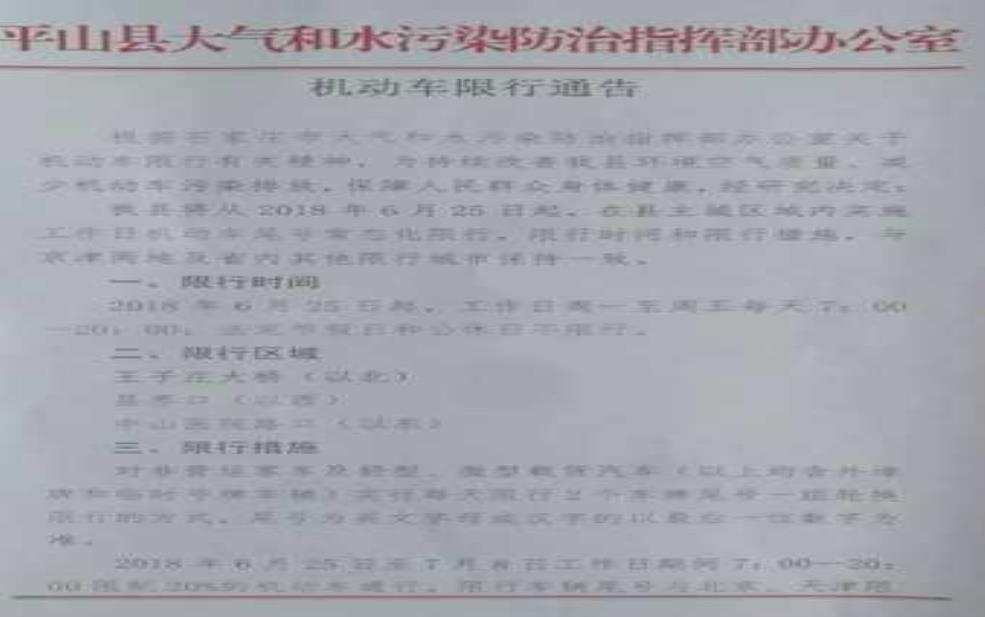 平山县大气和水污染防治指挥部办公室
机动车限行通告
根据石家庄市大气和水污染防治指挥部办公室关于
机动车限行有关精神，为持续改善我县环境空气质量，减
少机动车污染排放，保障人民群众身体健康，经研究决定：
我县将从 2018 年 6 月 25 日起，在县主城区域内实施
工作日机动车尾号常态化限行，限行时间和限行措施，与
京津两地及省内其他限行城市保持一致。
一、限行时间
2018 年 6 月 25 日起，工作日周一至周五每天 7：00
—20：00，法定节假日和公休日不限行。
二、限行区域
王子庄大桥（以北）
路口（以西）
中山医院路口（以东）
三、限行措施
对非营运客车及轻型、微型载货汽车（以上均含外埠
号牌车辆）实行每天限行 2 个车牌尾号一组轮换
限行的方式，尾号为英文字母或汉字的以最后一位数字为
准。
2018 年 6 月 25 日至 7 月 8 日工作日期间 7：00—20：
00 限制 20%的机动车通行。限行车辆尾号与北京、天津限